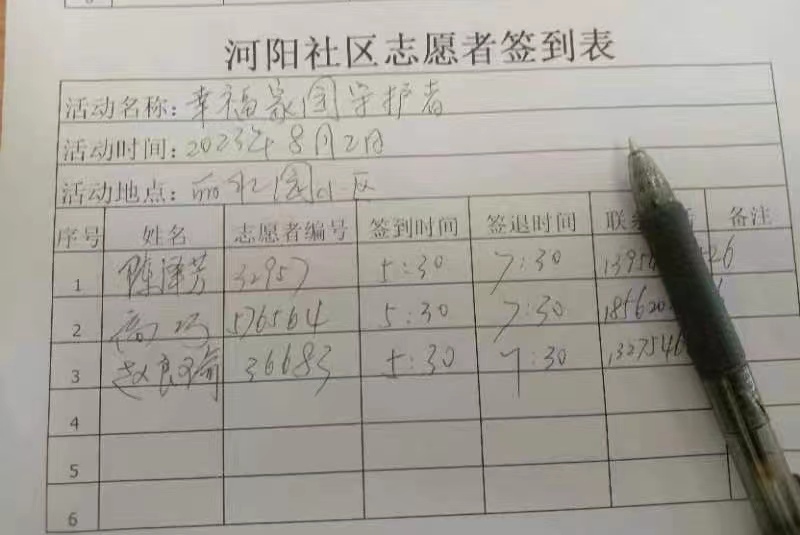 河阳社区志愿者签到表
活动名称：幸福家园守护者
活动时间：2023年8月2日
活动地点：丽水园小区
序号 姓名 志愿者编号 签到时间 签退时间 联系 备注
1 陈泽芳 32957 5:30 7:30
2 576564 5:30 7:30
3 赵良瑜 36683 5:30 7:30
4
5
6